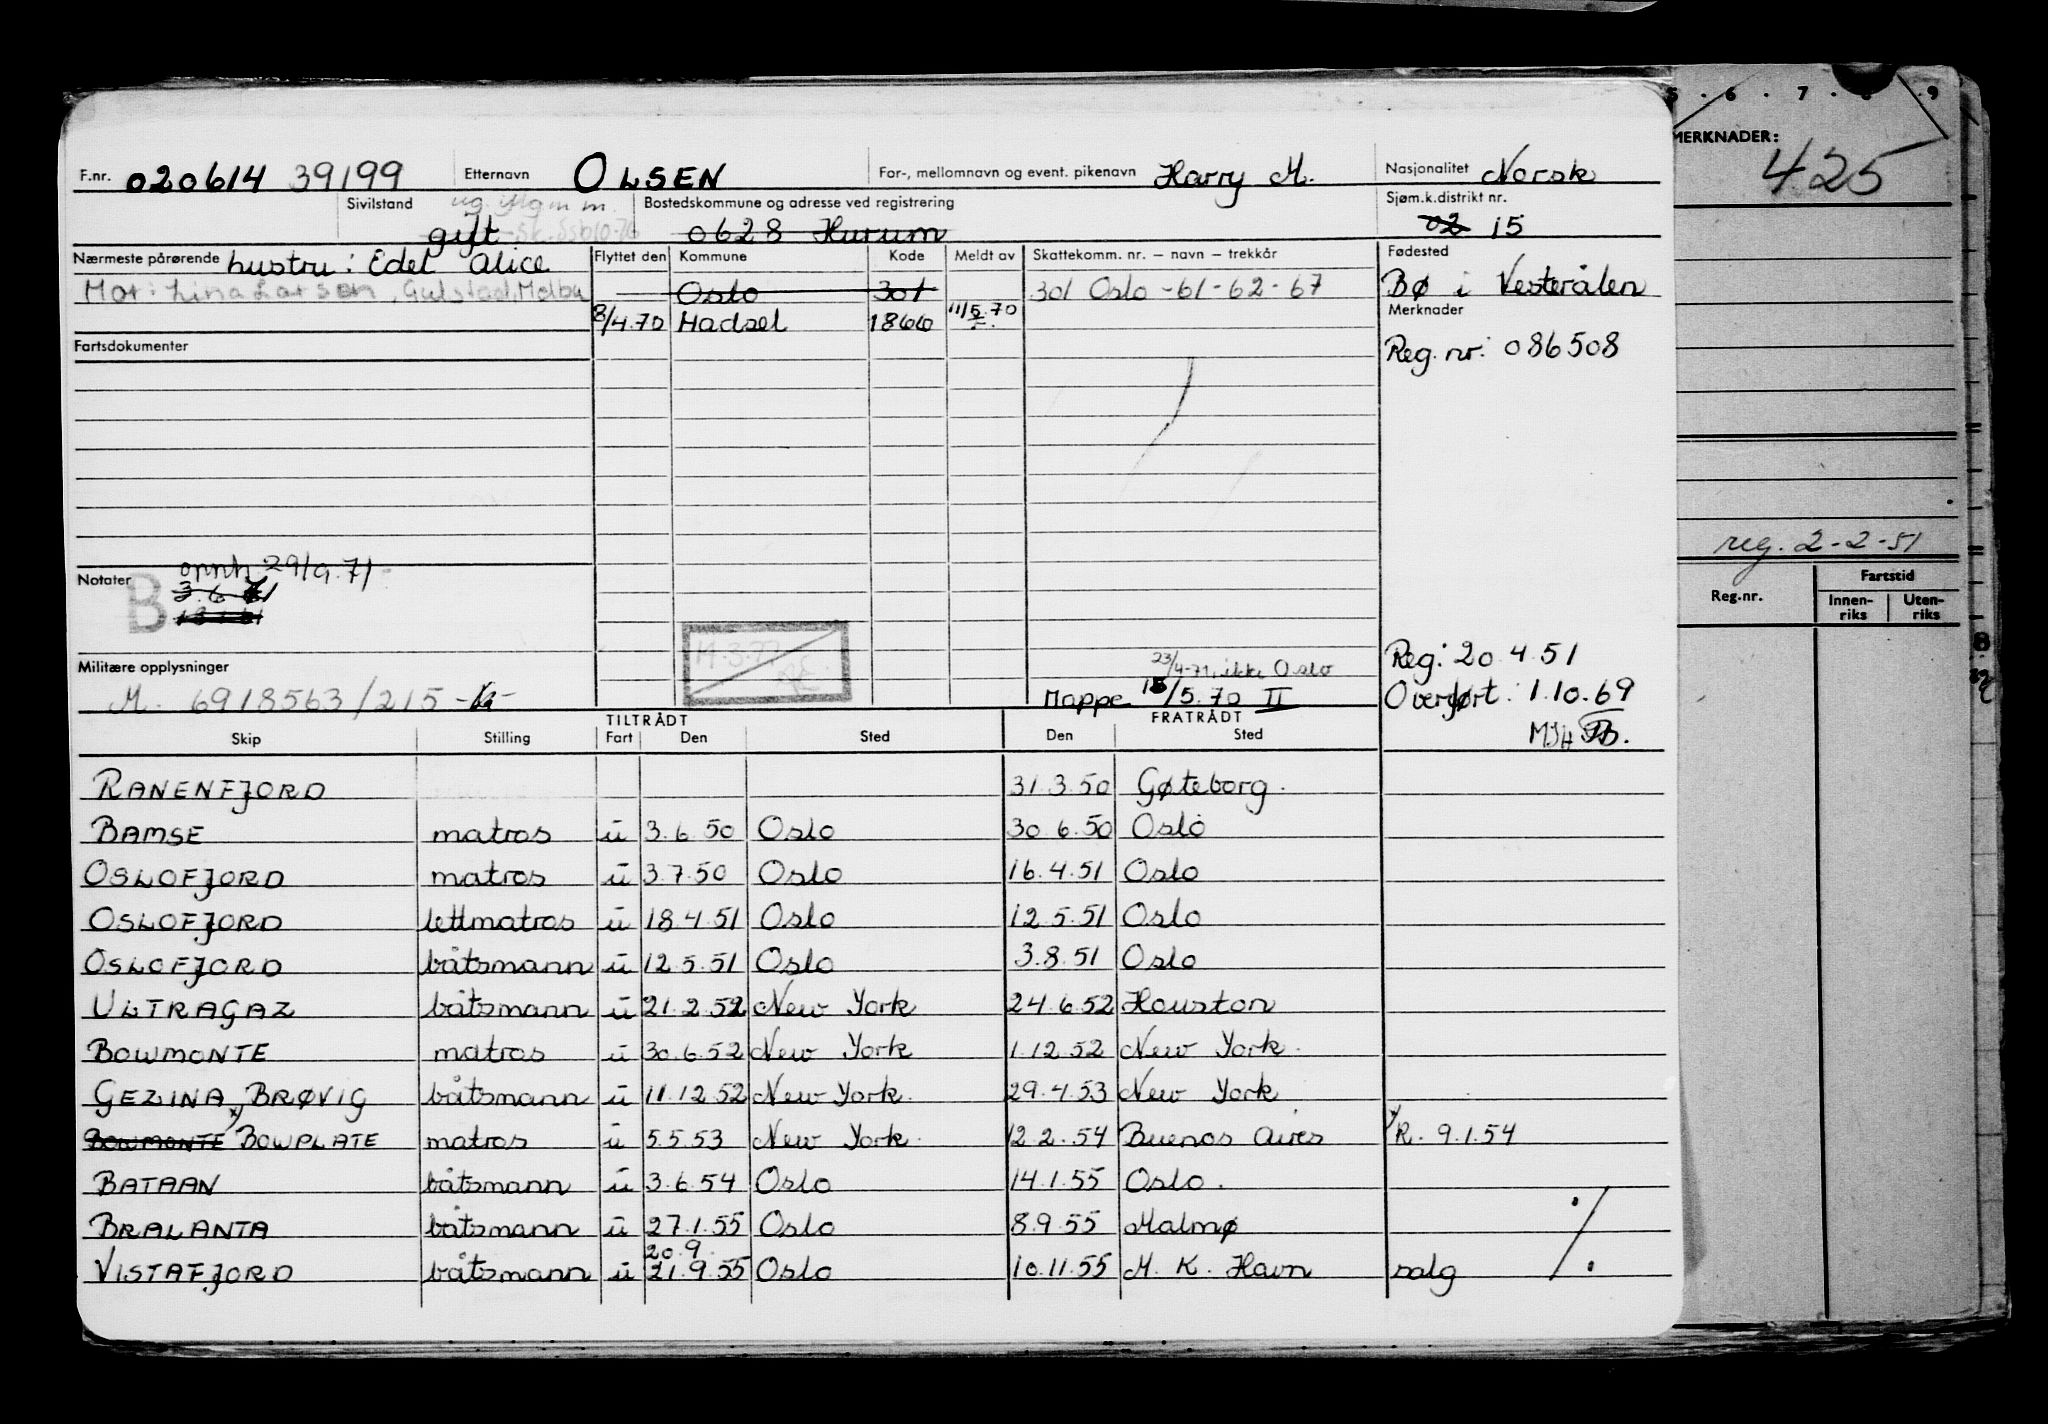 5 . 6 . 7 . 8 . 9
MERKNADER:
425
F.nr. 020614 39199 Etternavn OLSEN For-, mellomnavn og event. pikenavn Harry M. Nasjonalitet Norsk
Sivilstand Bostedskommune og adresse ved registrering Sjøm.k.distrikt nr.
gift 0628 Hurum 02 15
Nærmeste pårørende hustru: Edel Alice Flyttet den Kommune Kode Meldt av Skattekomm. nr. – navn – trekkår Fødested
Mor: Lina Larsen, Gulstad, Melbu Oslo 301 301 Oslo -61-62-67 Bø i Vesterålen
8/4.70 Hadsel 1866 11/5.70 Merknader
Fartsdokumenter
Reg. nr: 086508
reg. 2-2-51
Notater B oppnh 29/9.71-
3.6.71
Reg.nr. Fartstid
Innen-riks Uten-riks
Militære opplysninger
M. 6918563/215
23/4-71 ikke Oslo
Mappe 15/5.70 II
Reg: 20.4.51
Overført: 1.10.69
TILTRÅDT FRATRÅDT
Skip Stilling Fart Den Sted Den Sted
RANENFJORD 31.3.50 Gøteborg.
BAMSE matros u 3.6.50 Oslo 30.6.50 Oslo
OSLOFJORD matros u 3.7.50 Oslo 16.4.51 Oslo
OSLOFJORD lettmatros u 18.4.51 Oslo 12.5.51 Oslo
OSLOFJORD båtsmann u 12.5.51 Oslo 3.8.51 Oslo
ULTRAGAZ båtsmann u 21.2.52 New York 24.6.52 Houston
BOWMONTE matros u 30.6.52 New York 1.12.52 New York.
GEZINA BRØVIG båtsmann u 11.12.52 New York. 29.4.53 New York
BOWMONTE x BOWPLATE matros u 5.5.53 New York. 12.2.54 Buenos Aires x R. 9.1.54
BATAAN båtsmann u 3.6.54 Oslo 14.1.55 Oslo.
BRALANTA båtsmann u 27.1.55 Oslo 8.9.55 Malmø
20.9.
VISTAFJORD båtsmann u 21.9.55 Oslo 10.11.55 M. K. Havn salg ./.